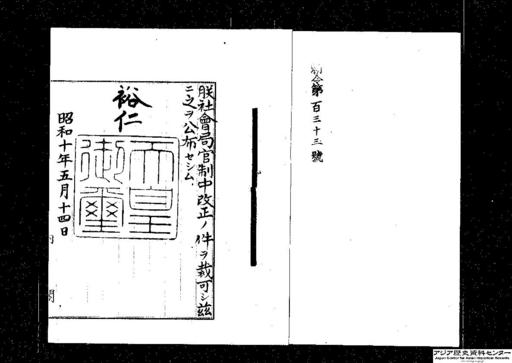 勅令第百三十三號
朕社會局官制中改正ノ件ヲ裁可シ茲
ニ之ヲ公布セシム
裕仁
天皇
御璽
昭和十年五月十四日
内閣
アジア歴史資料センター
Japan Center for Asian Historical Records